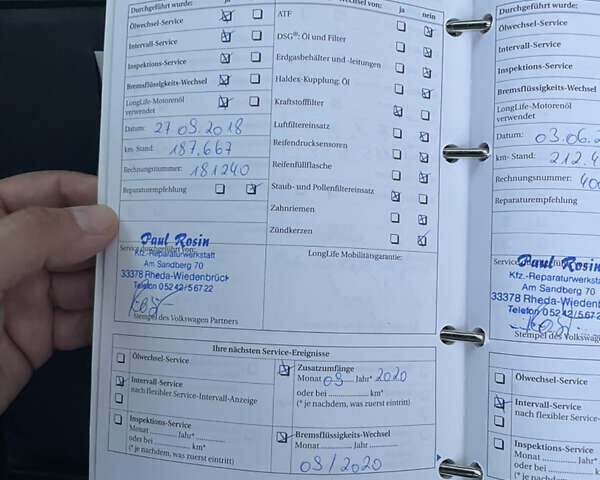 Durchgeführt wurde: ja
Ölwechsel-Service
Intervall-Service
Inspektions-Service
Bremsflüssigkeits-Wechsel
LongLife-Motorenöl
verwendet
Datum: 27 09. 2018
km-Stand: 187.667
Rechnungsnummer: 181240
Reparaturempfehlung
Paul Rosin
Kfz.-Reparaturwerkstatt
Am Sandberg 70
33378 Rheda-Wiedenbrück
Telefon 05242/56722
Service durchgeführt von:
Stempel des Volkswagen Partners
von: ja nein
ATF
DSG®: Öl und Filter
Erdgasbehälter und -leitungen
Haldex-Kupplung: Öl
Kraftstofffilter
Luftfiltereinsatz
Reifendrucksensoren
Reifenfüllflasche
Staub- und Pollenfiltereinsatz
Zahnriemen
Zündkerzen
LongLife Mobilitätsgarantie:
Ihre nächsten Service-Ereignisse
Ölwechsel-Service
Intervall-Service
nach flexibler Service-Intervall-Anzeige
Inspektions-Service
Monat .......... Jahr*..........
oder bei .................... km*
(* je nachdem, was zuerst eintritt)
Zusatzumfänge
Monat 09 Jahr* 2020
oder bei .................... km*
(* je nachdem, was zuerst eintritt)
Bremsflüssigkeits-Wechsel
Monat .......... Jahr..........
09/2020
Durchgeführt wurde:
Ölwechsel-Service
Intervall-Service
Inspektions-Service
Bremsflüssigkeits-Wechsel
LongLife-Motorenöl
verwendet
Datum: 03.06.2
km-Stand: 212.4
Rechnungsnummer: 400
Reparaturempfehlung
Paul Rosin
Kfz.-Reparaturwerk
Am Sandberg 70
33378 Rheda-Wieden
Telefon 05242/567
Stempel des Volkswage
Ölwechsel-Service
Intervall-Service
nach flexibler Service-
Inspektions-Service
Monat .......... Jahr
oder bei ..........
(* je nachdem, was